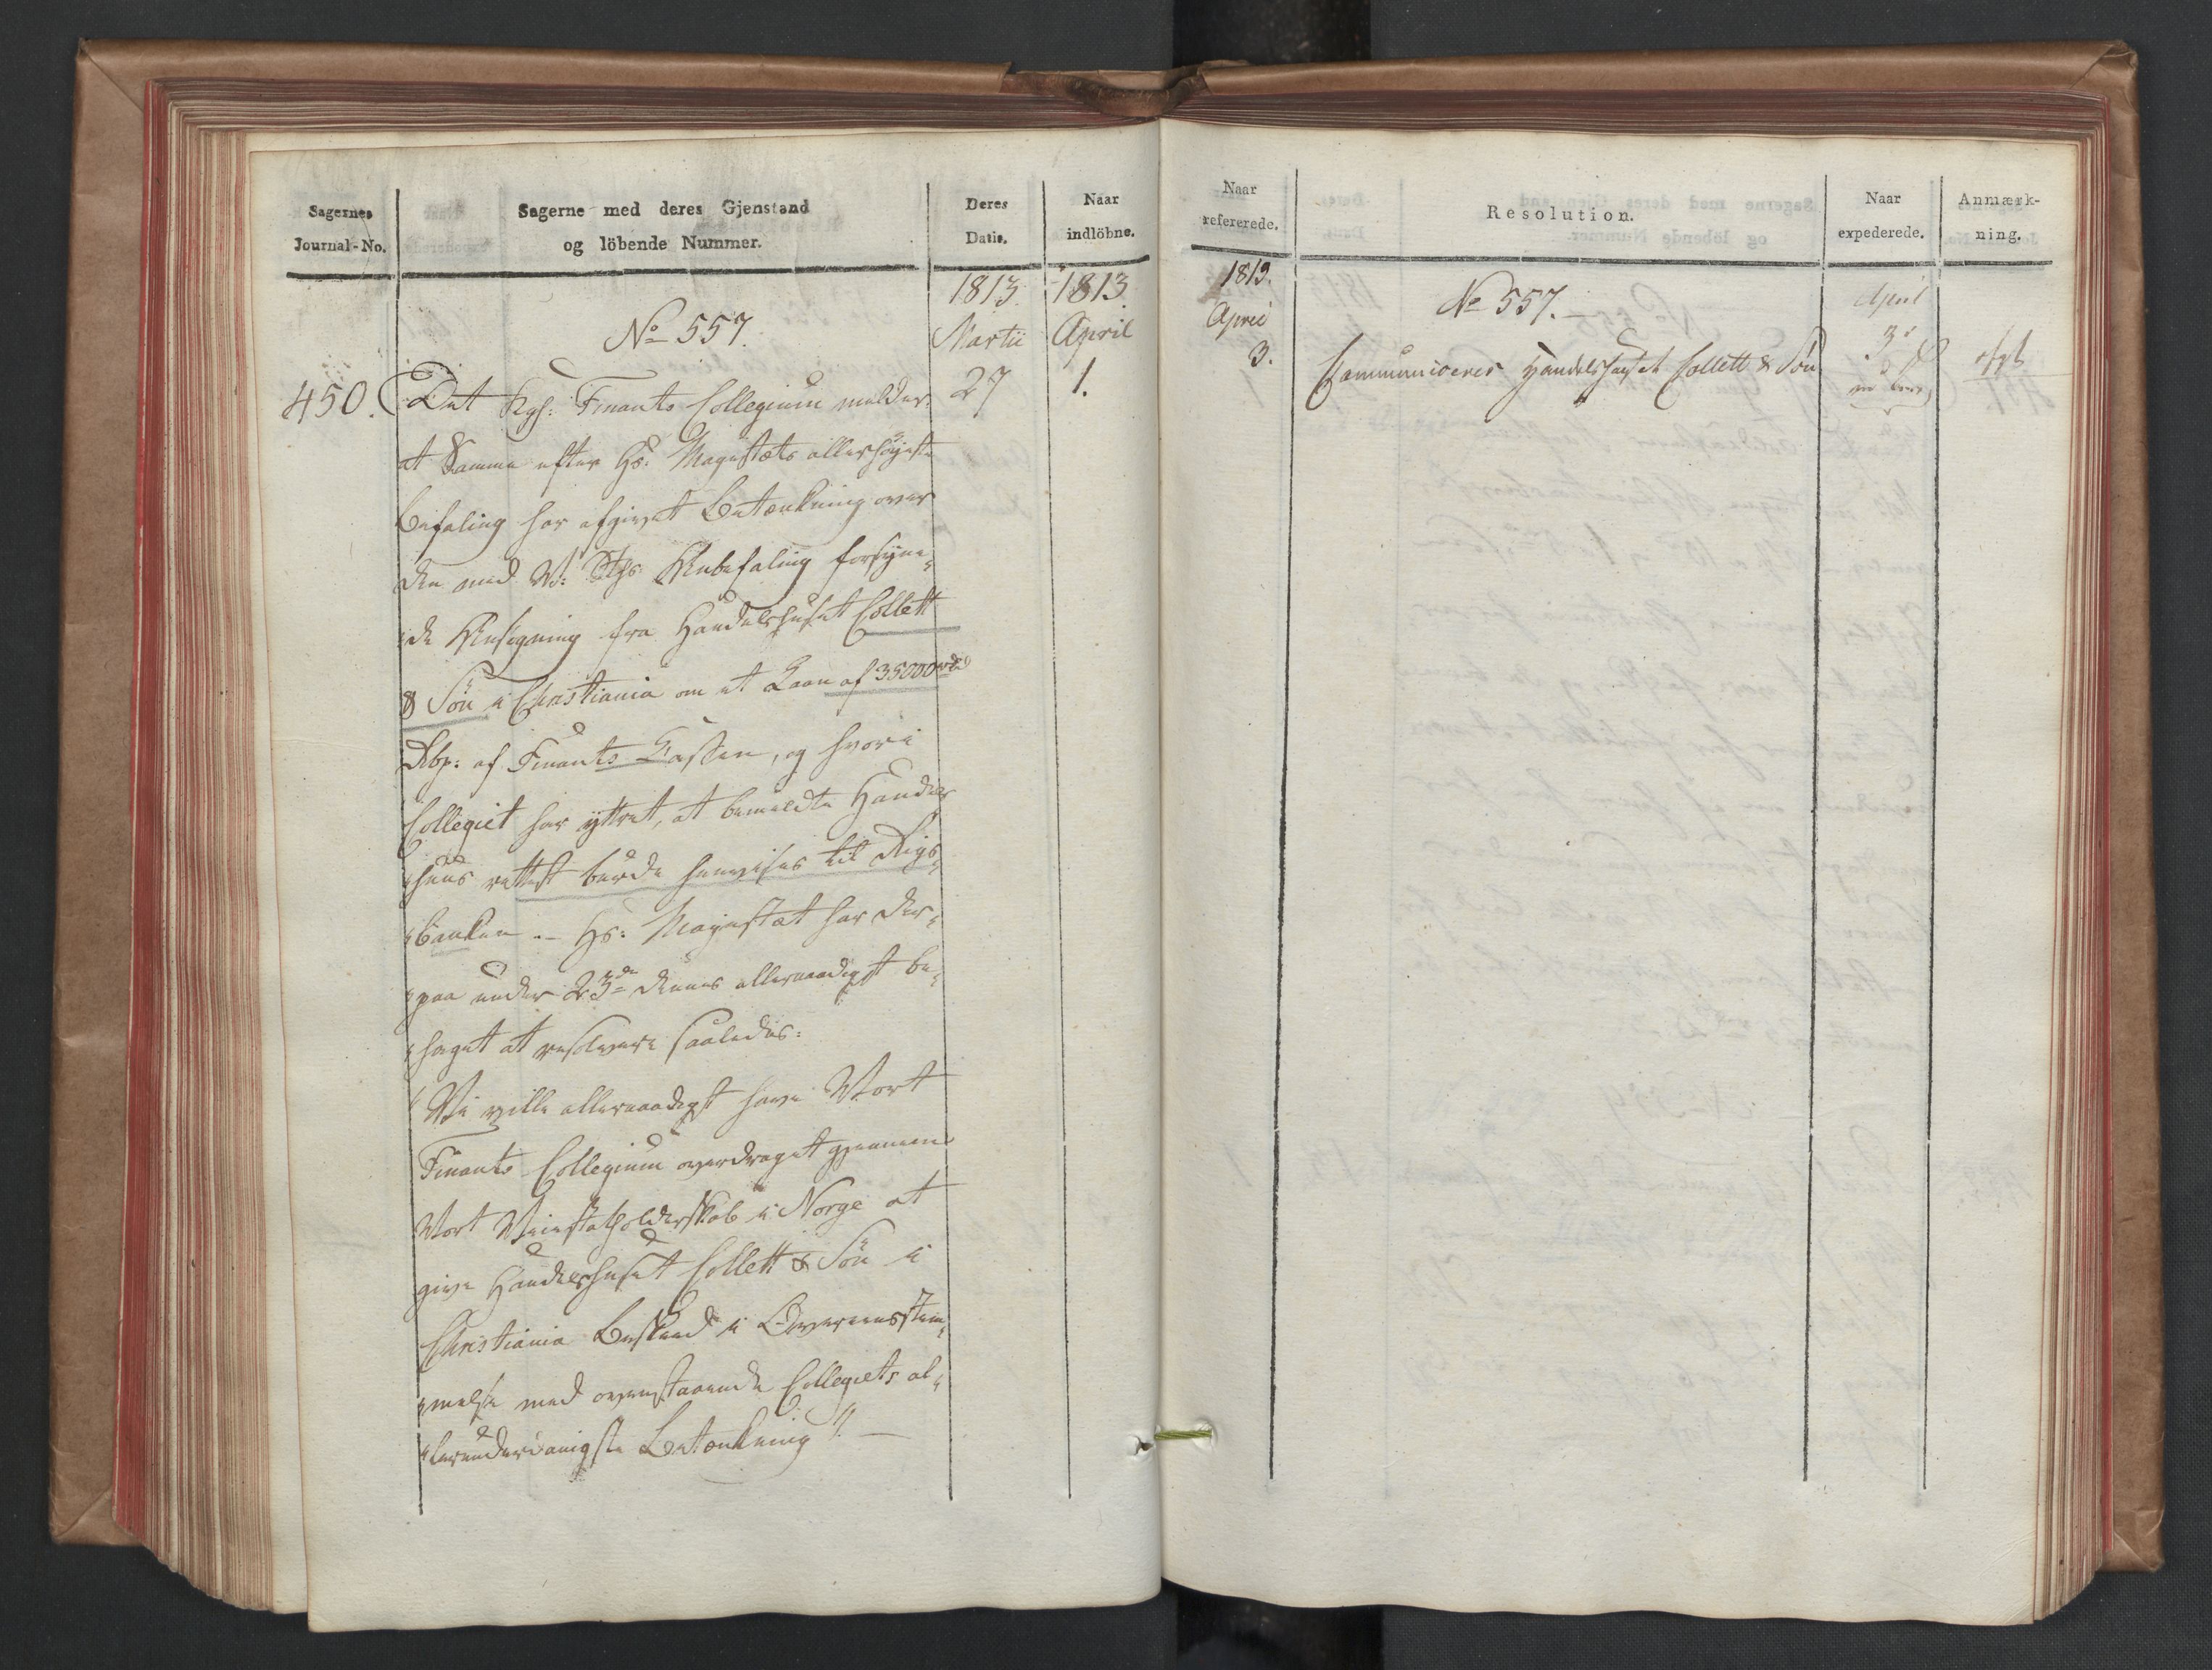 Sagernes
Journal-No.
Sagerne med deres Gjenstand
og löbende Nummer.
Deres
Datis.
Naar
indlöbne.
1813
1813
Martii
April
27
1.
No 557.
450.
Det Kgl: Finants Collegium melder,
at Samme efter Hs: Majestæts allerhøjeste
Befaling har afgivet Betænkning over
den med V: Sthsk: Anbefaling forsyne-
de Ansøgning fra Handelshuset Collett
& Søn i Christiania om et Laan af 35000 rd
Rbp: af Finants Cassen, og hvori
Collegiet har yttret, at bemeldte Handels
huus rettest burde henvises til Rigs-
banken. – Hs: Majestæt har der-
paa under 23de dennes allernaadigst be-
haget at resolvere saaledes:
"Vi ville allernaadigst have Vort
Finants Collegium overdraget gjennem
Vort Vicestatholderskab i Norge at
give Handelshuset Collett & Søn i
Christiania Beskeed i Overeensstem-
melse med ovenstaaende Collegiets al-
lerunderdanigste Betænkning". –
Naar
refererede.
Resolution.
Naar
expederede.
Anmærk-
ning.
1813.
April
3.
No 557. –
Communiceres Handelshuset Collett & Søn
April
3'